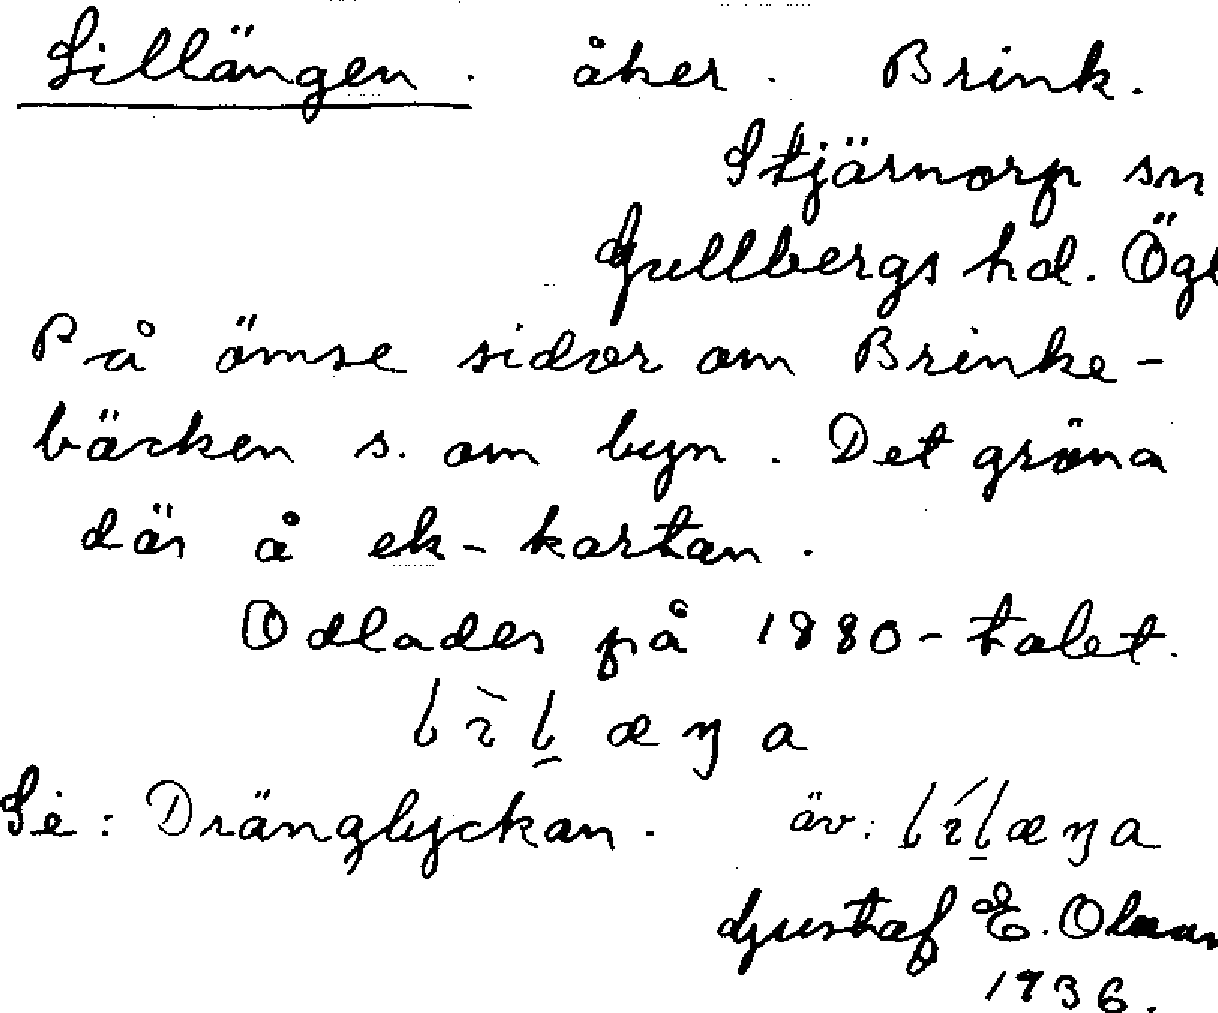 Lillängen. åker. Brink.
Stjärnorp sn
Gullbergs hd. Ögl
På ömse sidor om Brinke-
bäcken s. om byn. Det gröna
där å ek-kartan.
Odlades på 1880-talet.
lìl̠æŋa
Se: Dränglyckan. äv: líl̠æŋa
Gustaf E.
1936.